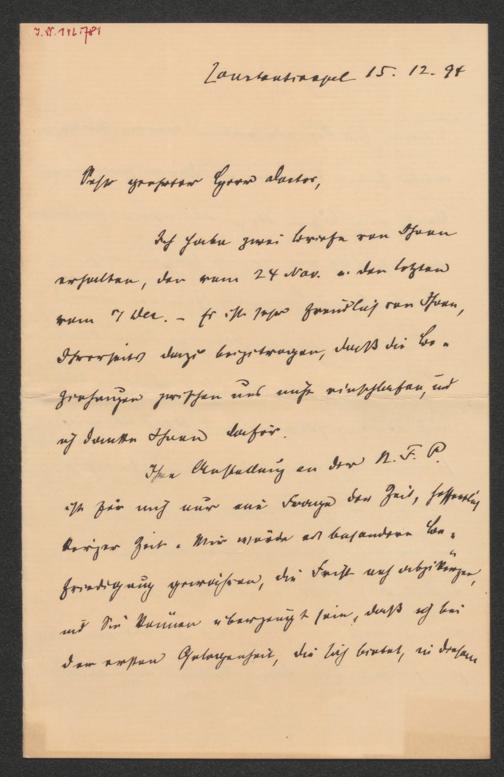 I.N. 116.781
Constantinopel 15. 12. 94
Sehr geehrter Herr Doctor,
Ich habe zwei Briefe von Ihnen
erhalten, den vom 24 Nov. u. den letzten
vom 7 Dec. – Es ist sehr freundlich von Ihnen,
Ihrerseits dazu beizutragen, daß die Be-
ziehungen zwischen uns nicht einschlafen, und
ich danke Ihnen dafür.
Ihre Anstellung an der N. F. P.
ist für mich nur eine Frage der Zeit, hoffentlich
kurzer Zeit. Mir würde es besondere Be-
friedigung gewähren, die Frist noch abzukürzen,
und Sie können überzeugt sein, daß ich bei
der ersten Gelegenheit, die sich bietet, in diesem